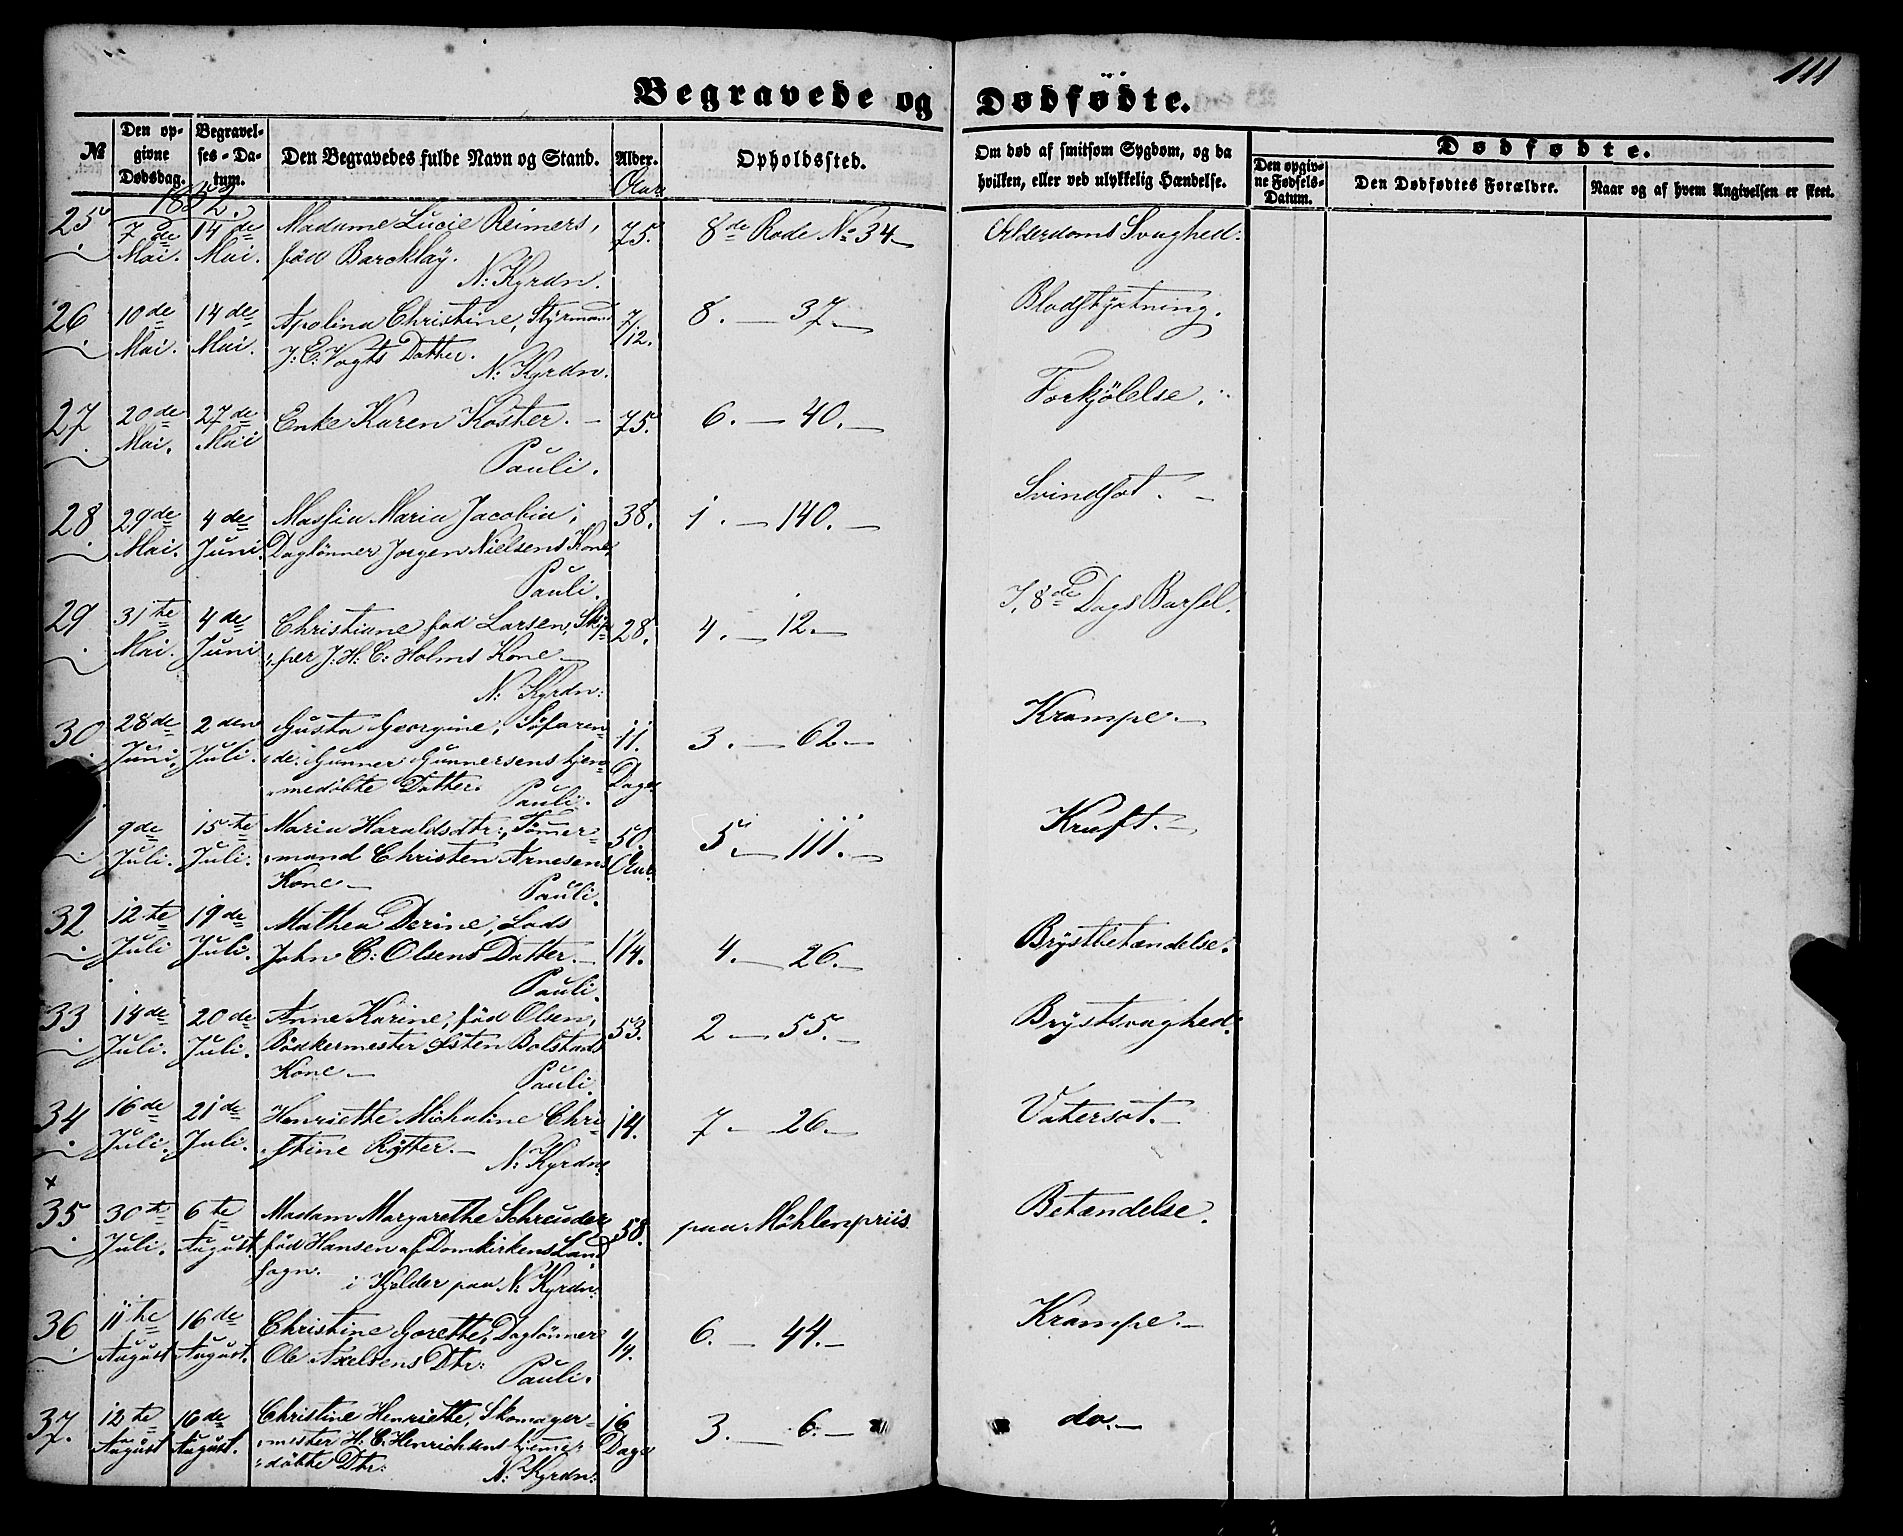 111
Begravede og Dødfødte.
№
Den opgivne Dødsdag.
Begravelses-Datum.
Den Begravedes fulde Navn og Stand.
Alder.
Opholdssted.
Om død af smitsom Sygdom, og da hvilken, eller ved ulykkelig Hændelse.
Dødfødte.
Den opgivne Fødsels-Datum.
Den Dødfødtes Forældre.
Naar og af hvem Angivelsen er skeet.
Aar
25 7de 14de Madame Lucie Reimers, 75. 8de Rode No 34 Alderdoms Svaghed.
Mai. Mai. fød Barcklay.
N: Kyrdn.
26 10de 14de Apolina Christine, Styrmand 7/12. 8. — 37. — Blodstyrtning.
Mai. Mai. J: C: Vogts Datter.
N: Kyrdn.
27 20de 27de Enke Karen Köster. — 75. 6. — 40. — Forkjölelse.
Mai. Mai
Pauli.
28. 29de 4de Massia Maria Jacobia, 38. 1. — 140. — Svindsot. —
Mai. Juni. Daglönner Jörgen Nielsens Kone,
Pauli.
29 31te 4de Christiane fød Larsen, Skip 28. 4. — 12. — I, 8de Dags Barsel.
Mai. Juni per J: H: C: Holms Kone —
N: Kyrdn:
30 28de 2den Gusta Georgine, Söfaren 11. 3. — 62. — Krampe. —
Juni. Juli. de Gunner Gunnersens hjem Dage
medöbte Datter. Pauli.
9de 15te Maria Haraldsdtr:, Tömer 50. 5. — 111. — Kræft. —
Juli. Juli. mand Christen Arnesens Aar.
Kone — Pauli.
32 12te 19de Mathea Derine, Lods
Juli Juli. John C: Olsens Datter. — 1 1/4. 4. — 26. — Brystbetændelse.
Pauli.
33 14de 20de Anne Karine, fød Olsen, 53. 2 — 55. — Brystsvaghed.
Juli. Juli. Bödkermester Osten Bolstads
Kone — Pauli.
34 16de 21de Henriette Michaline Chri 14. 7 — 26. — Vatersot. —
Juli. Juli. stine Rytter. —
N: Kyrdn.
x
35 30te 6te Madam Margarethe Schreuder 58. paa Möhlenpriis Betændelse.
Juli. August. fød Hansen af Domkirkens Land
sogn. i Kjelder paa N: Kyrdn:
36 11te 16de Christine Gorette, Daglönner 1/4. 6. — 44. — Krampe. —
August August. Ole Axelsens Dtr:
Pauli.
37. 12te 16de Christine Henriette, Skomager 16 3. — 6. — do. —
August August. mester H: C. Henrichsens hjemme Dage
döbte Dtr: N: Kyrdn: